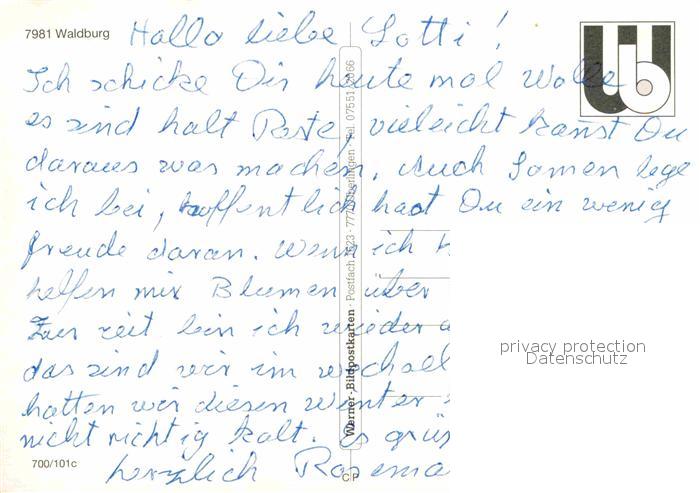 7981 Waldburg
Hallo liebe Lotti!
Ich schicke Dir heute mal Wolle
es sind halt Reste, vieleicht kanst Du
daraus was machen. Auch Samen lege
ich bei, hoffentlich hast Du ein wenig
freude daran. Wenn ich
helfen mir Blumen über
Zur zeit bin ich wieder
das sind wir im
hatten wir diesen Winter
nicht richtig kalt. Es grüs
herzlich Rosema
700/101c
Werner · Bildpostkarten · Postfach 1523 · 7770 Überlingen · Tel. 07551
CP
privacy protection
Datenschutz